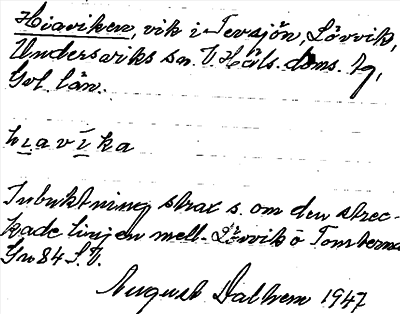 Hiaviken, vik i Tevsjön, Lörvik,
Undersviks sn. V. Häls. doms. hg,
Gvl. län.
hiavíka
Inbuktning strax s. om den strec-
kade linjen mell. Lörvik o
Gu 84 S.V.
August Dalhem 1947